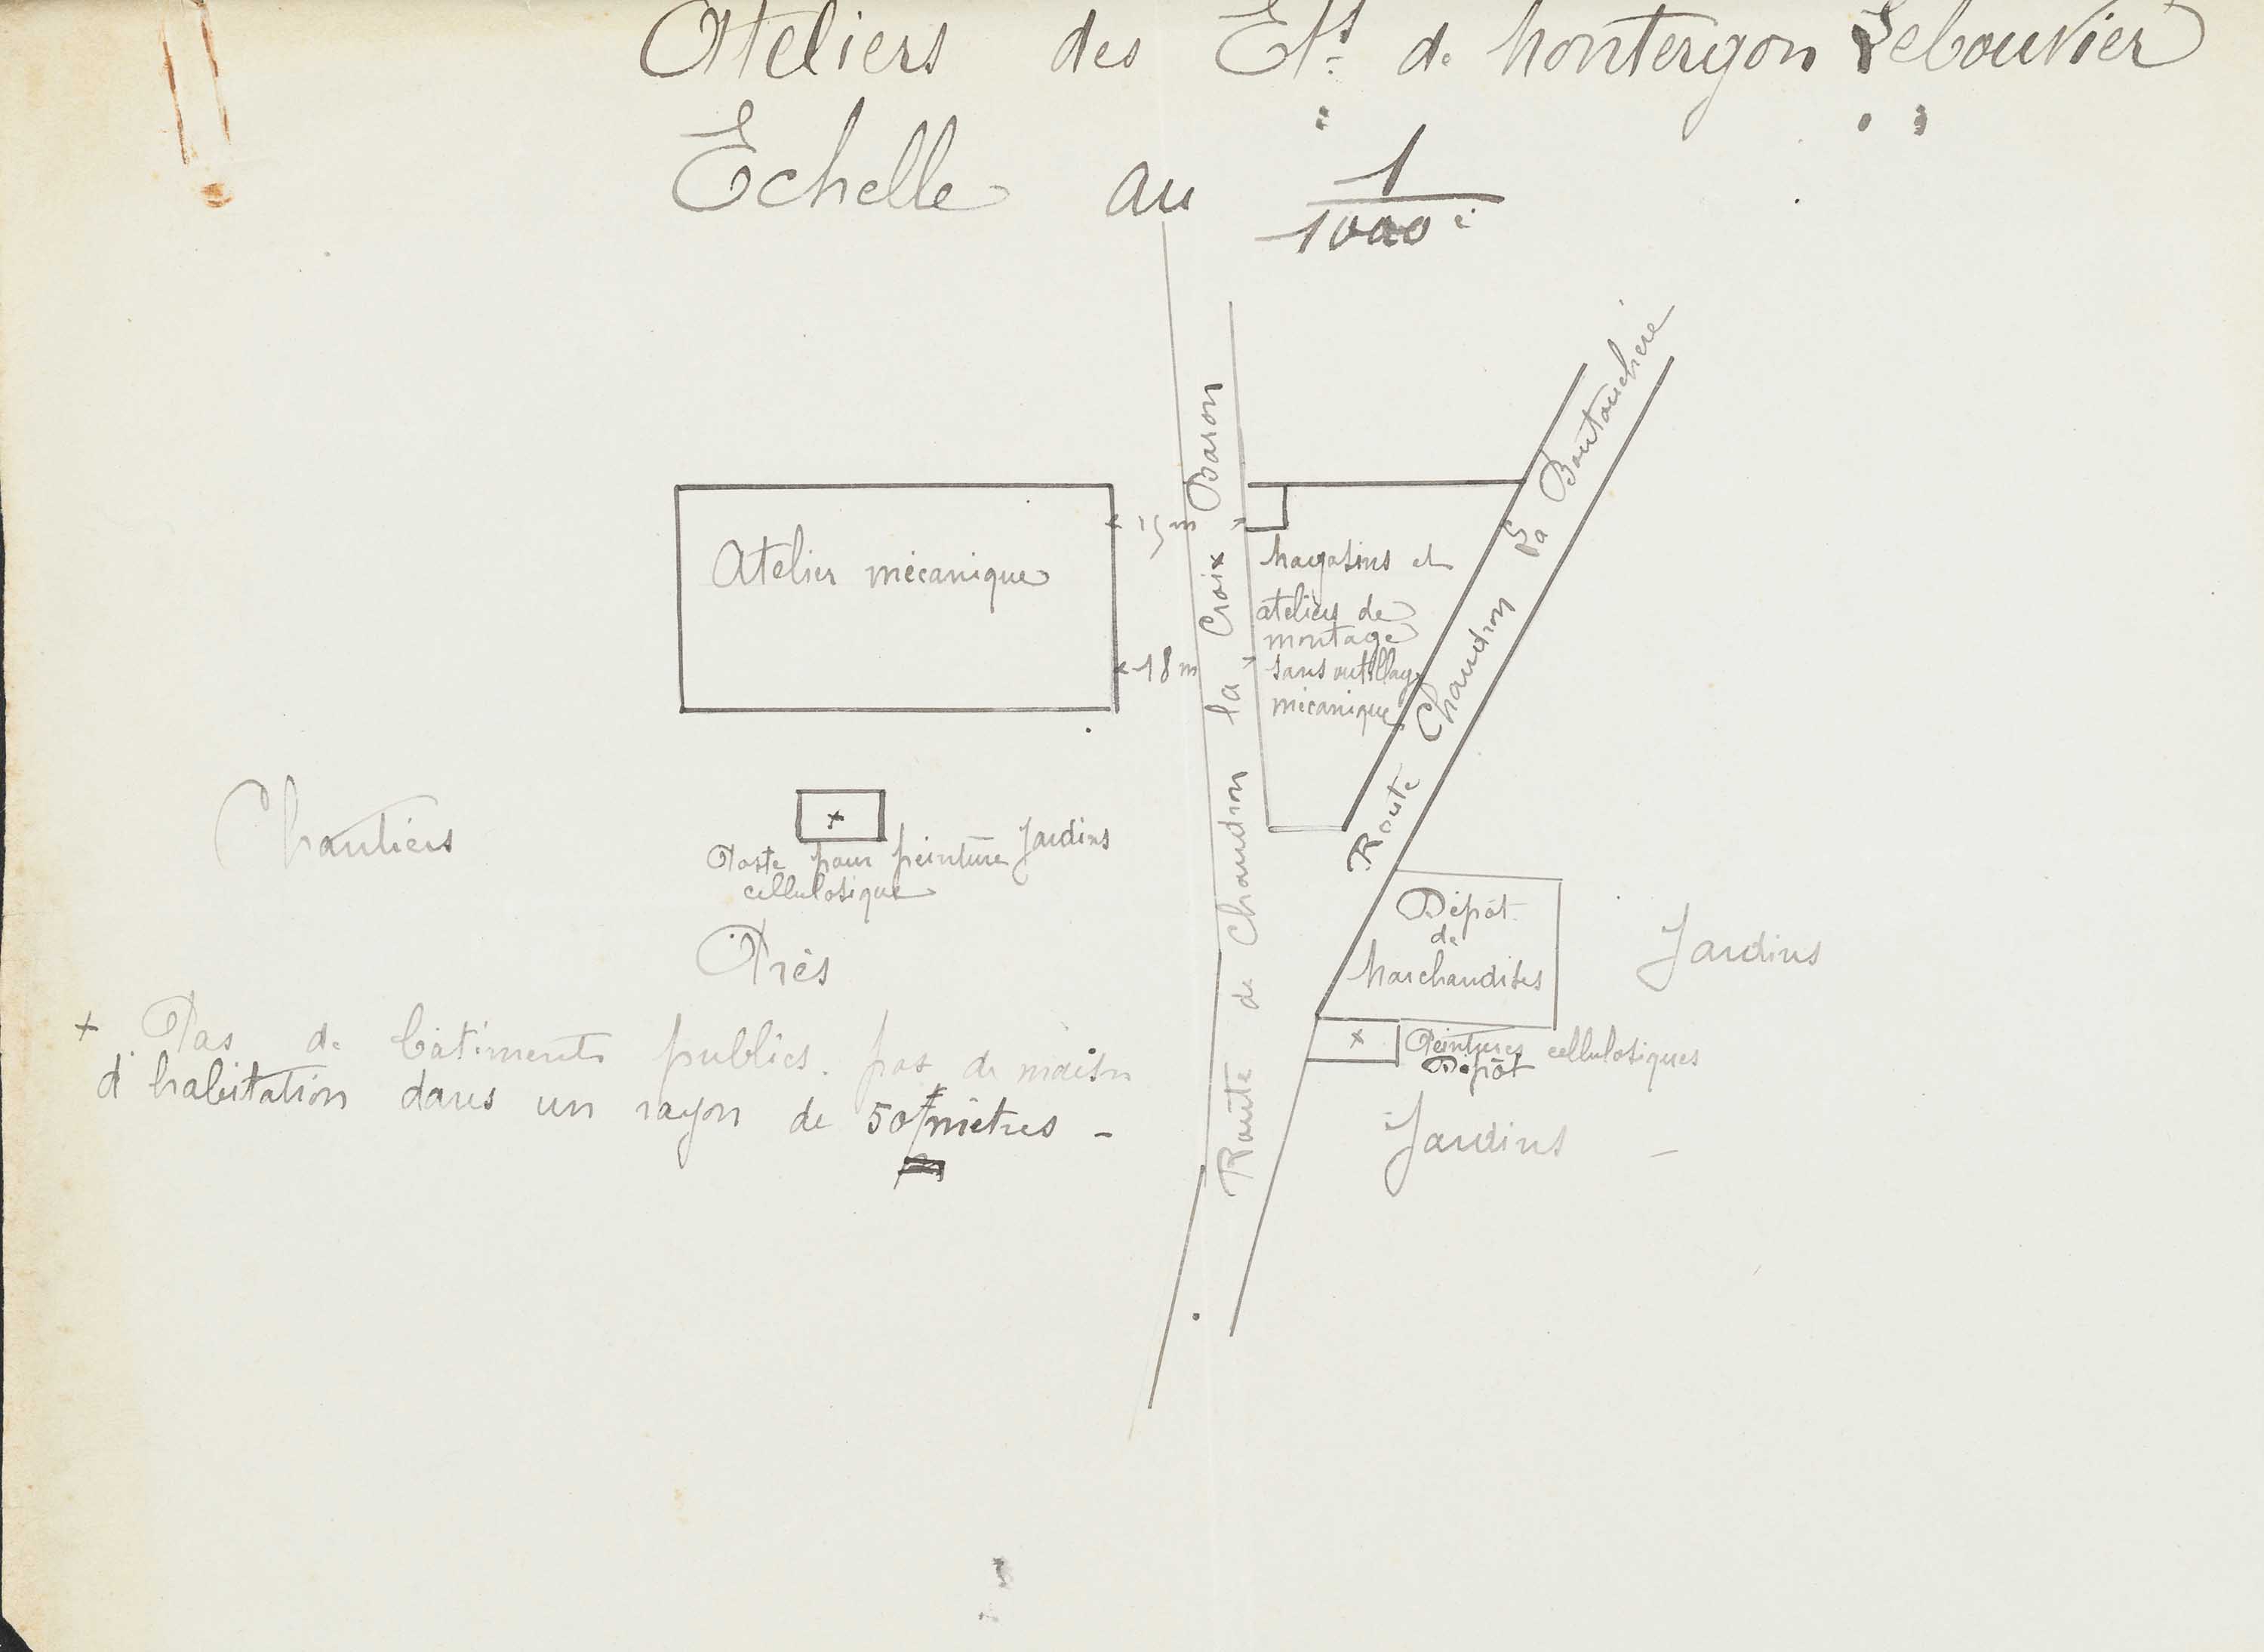 Ateliers des Ets de Montergon Lebouvier
Echelle au 1/1000è
Route de Chaudron la Croix Baron
Route Chaudron La Boutouchère
Atelier mécanique
15 m
18 m
Magasins et
ateliers de
montage
sans outillage
mécanique
Chantiers
+
Poste pour peinture
cellulosique
Jardins
Prés
Dépôt
de
Marchandises
Jardins
+
Peintures cellulosiques
Dépôt
Jardins -
+ Pas de bâtiments publics. pas de maison
d'habitation dans un rayon de 50 mètres -